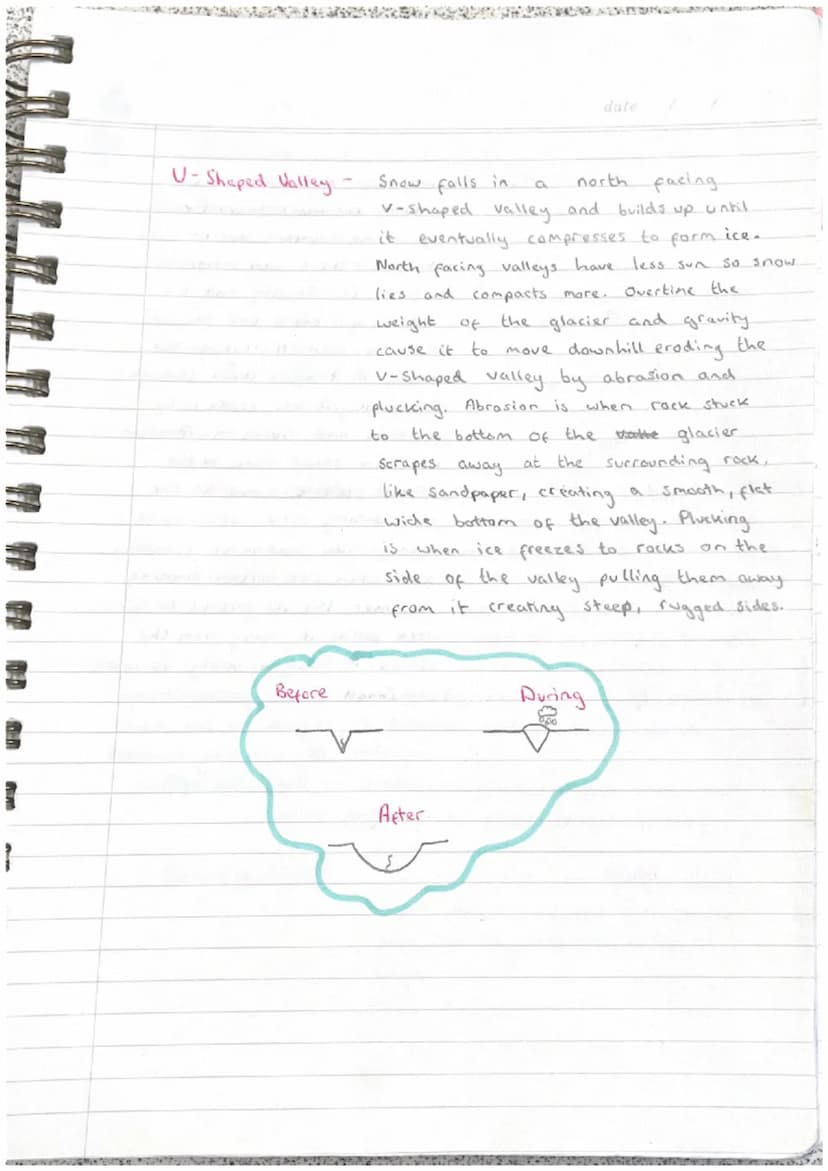 date / /
U-Shaped Valley - Snow falls in a north facing
V-shaped valley and builds up until
it eventually compresses to form ice.
North facing valleys have less sun so snow
lies and compacts more. Overtime the
weight of the glacier and gravity
cause it to move downhill eroding the
V-Shaped valley by abrasion and
plucking. Abrasion is when rock stuck
to the bottom of the glacier
scrapes away at the surrounding rock,
like sandpaper, creating a smooth, flat
wide bottom of the valley. Plucking
is when ice freezes to rocks on the
side of the valley pulling them away
from it creating steep, rugged sides.
Before During
After